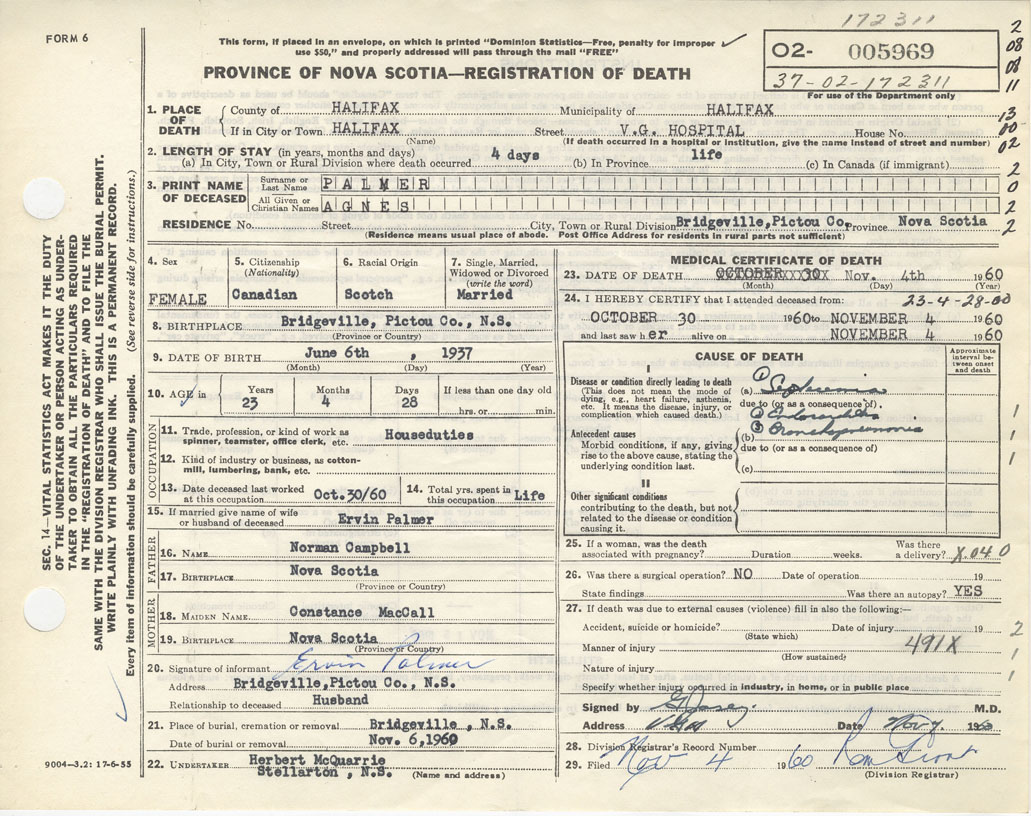 172311
FORM 6
This form, if placed in an envelope, on which is printed "Dominion Statistics—Free, penalty for improper
use $50," and properly addressed will pass through the mail "FREE"
02- 005969
37-02-172311
For use of the Department only
PROVINCE OF NOVA SCOTIA—REGISTRATION OF DEATH
2
08
08
11
13
00-
02
2
0
2
2
1. PLACE OF DEATH
County of HALIFAX Municipality of HALIFAX
If in City or Town HALIFAX Street V.G. HOSPITAL House No.
(Name) (If death occurred in a hospital or institution, give the name instead of street and number)
2. LENGTH OF STAY (in years, months and days)
(a) In City, Town or Rural Division where death occurred 4 days (b) In Province life (c) In Canada (if immigrant)
3. PRINT NAME OF DECEASED
Surname or Last Name PALMER
All Given or Christian Names AGNES
RESIDENCE No. Street City, Town or Rural Division Bridgeville,Pictou Co. Province Nova Scotia
(Residence means usual place of abode. Post Office Address for residents in rural parts not sufficient)
4. Sex FEMALE
5. Citizenship (Nationality) Canadian
6. Racial Origin Scotch
7. Single, Married, Widowed or Divorced (write the word) Married
8. BIRTHPLACE Bridgeville, Pictou Co., N.S.
(Province or Country)
9. DATE OF BIRTH June 6th , 1937
(Month) (Day) (Year)
10. AGE in Years 23 Months 4 Days 28 If less than one day old
hrs. or min.
OCCUPATION
11. Trade, profession, or kind of work as
spinner, teamster, office clerk, etc. Houseduties
12. Kind of industry or business, as cotton-
mill, lumbering, bank, etc.
13. Date deceased last worked
at this occupation Oct.30/60
14. Total yrs. spent in
this occupation Life
15. If married give name of wife
or husband of deceased Ervin Palmer
FATHER
16. NAME Norman Campbell
17. BIRTHPLACE Nova Scotia
(Province or Country)
MOTHER
18. MAIDEN NAME Constance MacCall
19. BIRTHPLACE Nova Scotia
(Province or Country)
20. Signature of informant Ervin Palmer
Address Bridgeville,Pictou Co., N.S.
Relationship to deceased Husband
21. Place of burial, cremation or removal Bridgeville , N.S.
Date of burial or removal Nov. 6,1960
22. UNDERTAKER Herbert McQuarrie
Stellarton , N.S. (Name and address)
MEDICAL CERTIFICATE OF DEATH
23. DATE OF DEATH OCTOBER 30 Nov. 4th 1960
(Month) (Day) (Year)
24. I HEREBY CERTIFY that I attended deceased from: 23-4-28-00
OCTOBER 30 1960 to NOVEMBER 4 1960
and last saw her alive on NOVEMBER 4 1960
CAUSE OF DEATH
Approximate interval between onset and death
I
Disease or condition directly leading to death
(This does not mean the mode of
dying, e.g., heart failure, asthenia,
etc. It means the disease, injury, or
complication which caused death.)
(a) 1 Septicemia
due to (or as a consequence of).
2 Endocarditis
3 Bronchopneumonia
Antecedent causes
Morbid conditions, if any, giving
rise to the above cause, stating the
underlying condition last.
(b)
due to (or as a consequence of)
(c)
II
Other significant conditions
contributing to the death, but not
related to the disease or condition
causing it.
1
1
1
25. If a woman, was the death
associated with pregnancy? Duration weeks. Was there
a delivery? X.040
26. Was there a surgical operation? NO Date of operation 19
State findings Was there an autopsy? YES
27. If death was due to external causes (violence) fill in also the following:—
Accident, suicide or homicide? Date of injury 19
(State which)
Manner of injury 491X
(How sustained)
Nature of injury
Specify whether injury occurred in industry, in home, or in public place
2
1
1
Signed by M.D.
Address Date Nov 7 1960
28. Division Registrar's Record Number
29. Filed Nov 4 1960
(Division Registrar)
SEC. 14—VITAL STATISTICS ACT MAKES IT THE DUTY
OF THE UNDERTAKER OR PERSON ACTING AS UNDER-
TAKER TO OBTAIN ALL THE PARTICULARS REQUIRED
IN THE "REGISTRATION OF DEATH" AND TO FILE THE
SAME WITH THE DIVISION REGISTRAR WHO SHALL ISSUE THE BURIAL PERMIT.
WRITE PLAINLY WITH UNFADING INK. THIS IS A PERMANENT RECORD.
Every item of information should be carefully supplied. (See reverse side for instructions.)
9004—3.2: 17-6-55